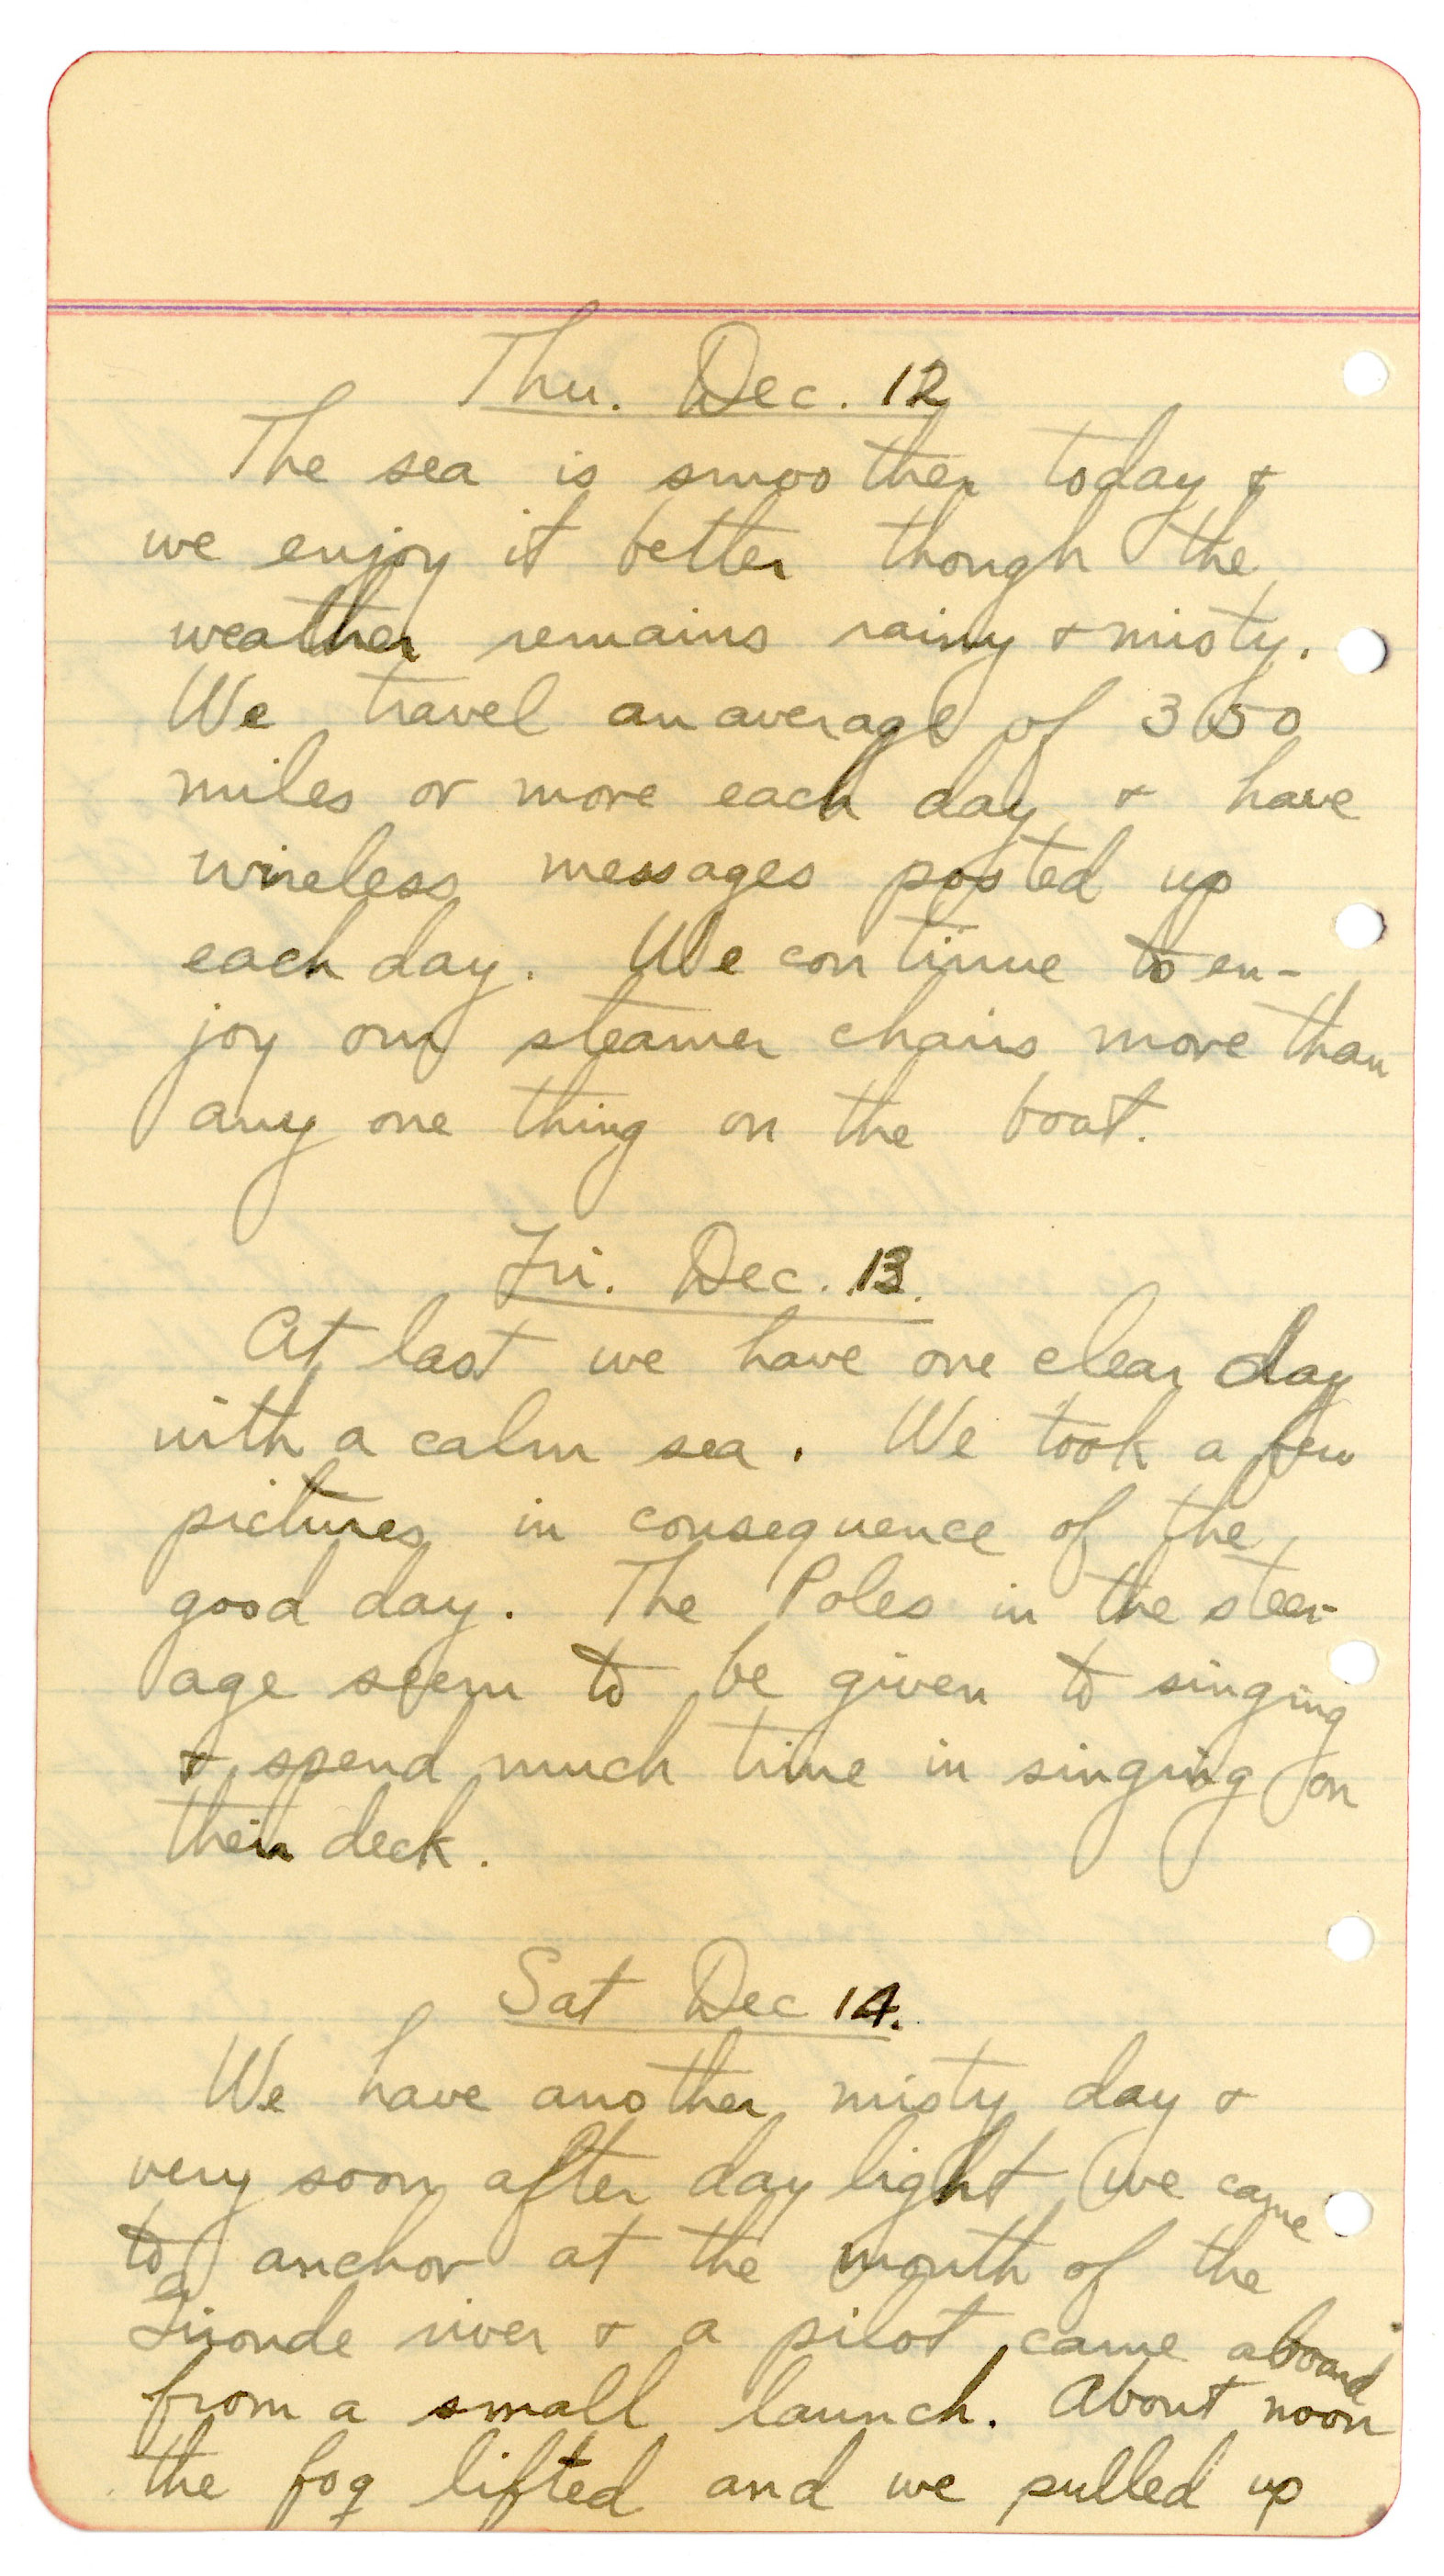 Thu. Dec. 12
The sea is smoother today &
we enjoy it better though the
weather remains rainy & misty.
We travel an average of 350
miles or more each day & have
wireless messages posted up
each day. We continue to en-
joy our steamer chairs more than
any one thing on the boat.
Fri. Dec. 13.
At last we have one clear day
with a calm sea. We took a few
pictures in consequence of the
good day. The Poles in the steer-
age seem to be given to singing
& spend much time in singing on
their deck.
Sat Dec 14.
We have another misty day &
very soon after day light we came
to anchor at the mouth of the
Gironde river & a pilot came aboard
from a small launch. About noon
the fog lifted and we pulled up